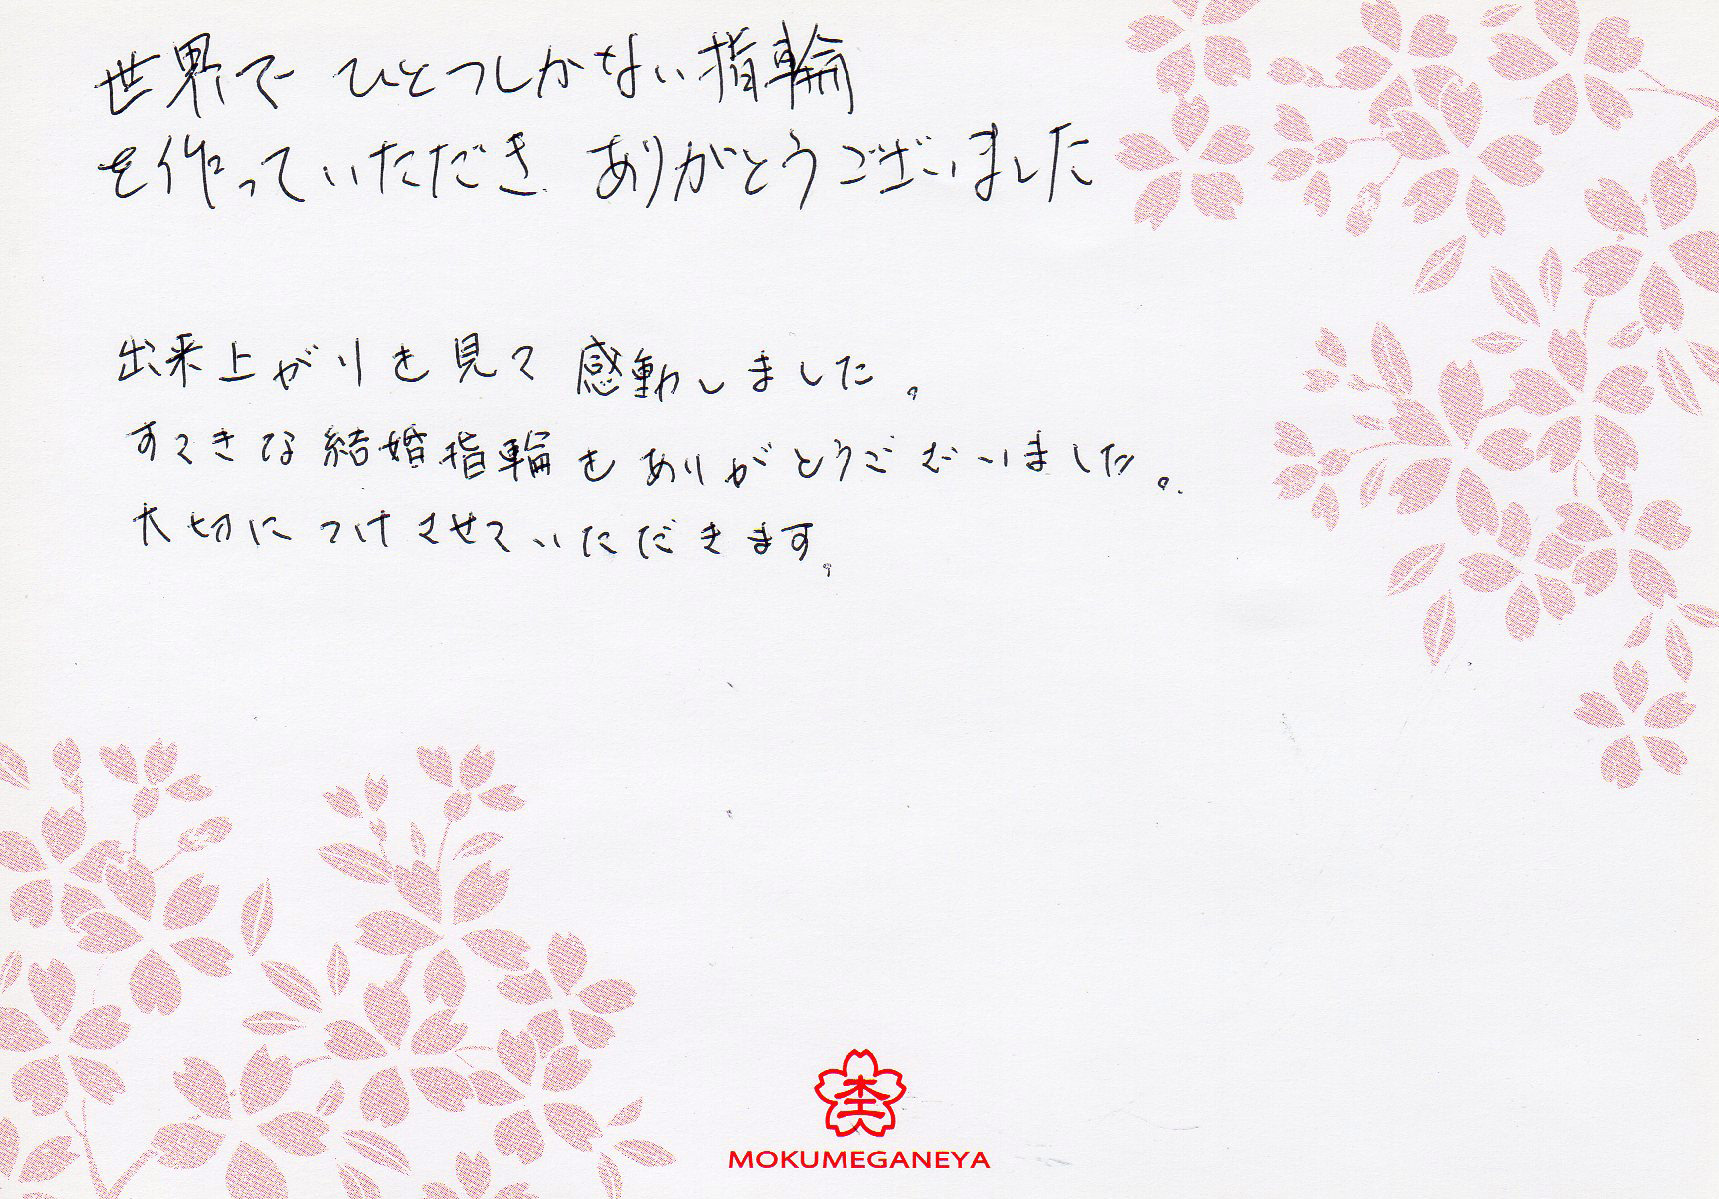 世界で ひとつしかない指輪
を作っていただき ありがとうございました
出来上がりを見て感動しました。
すてきな結婚指輪をありがとうございました。
大切につけさせていただきます。
杢
MOKUMEGANEYA